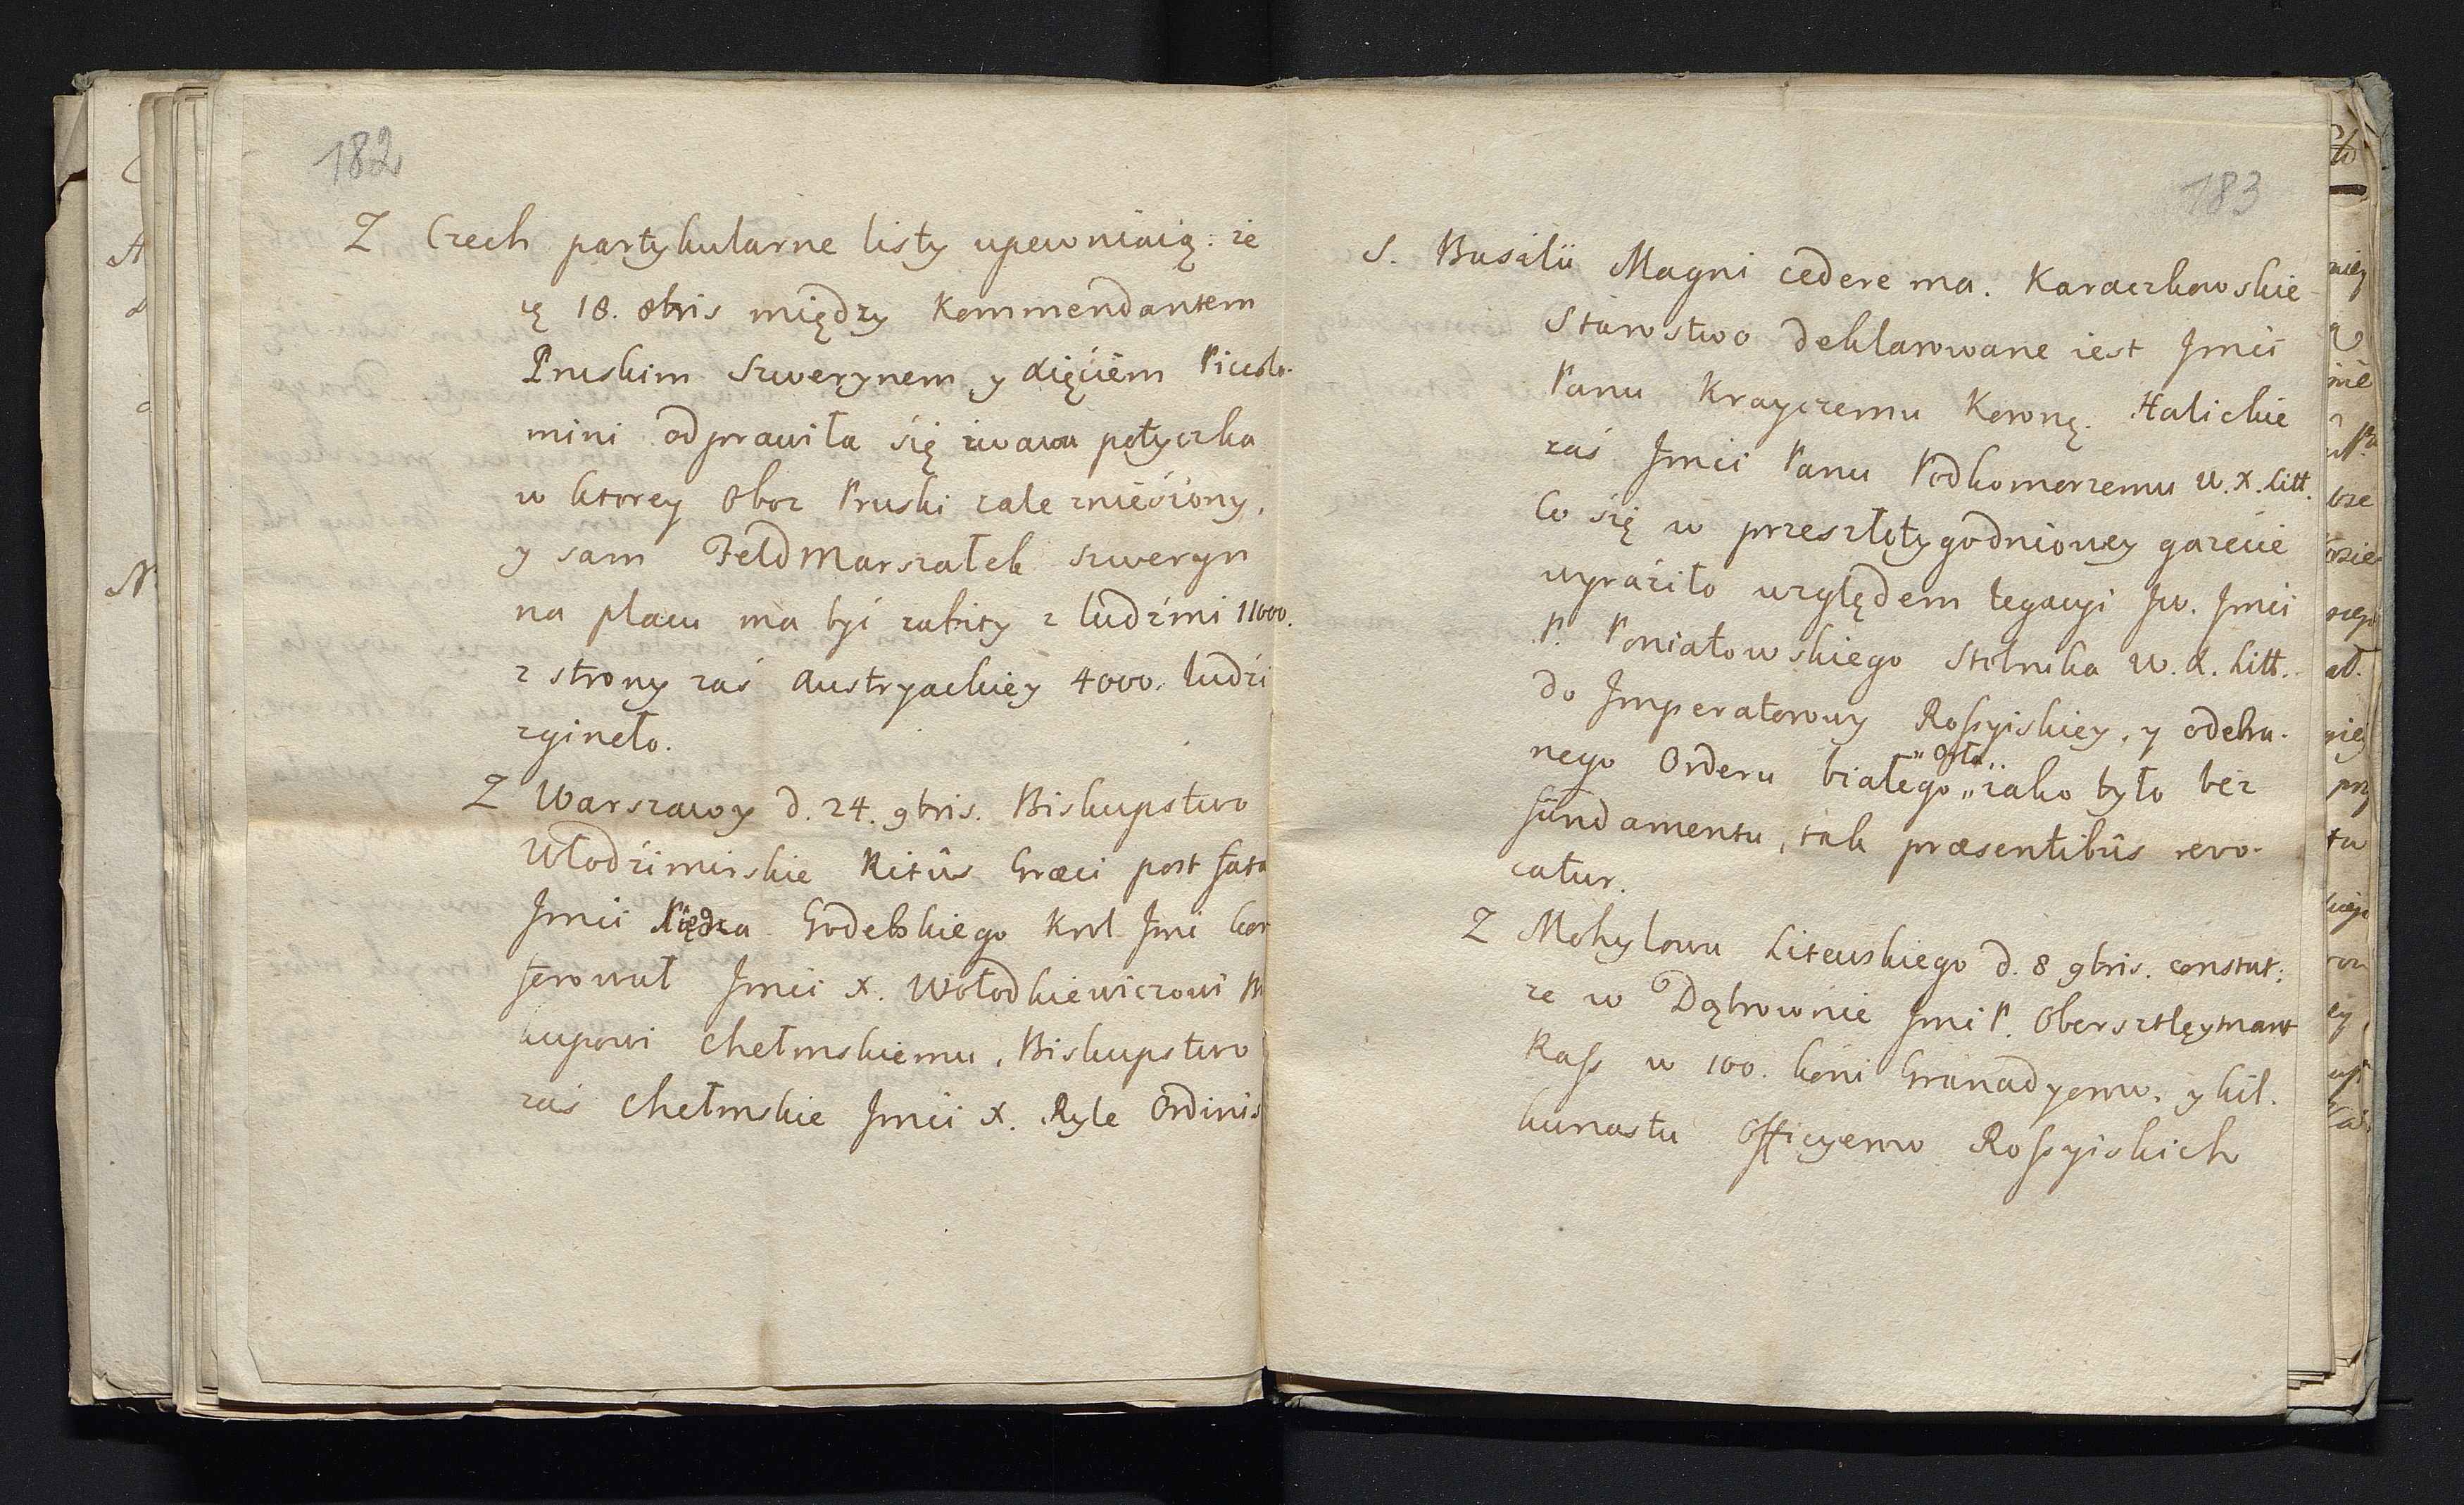 182
Z Czech partykularne listy upewniaią: że
ę 18. 8bris między Kommendantem
Pruskim Szwerynem y Xięćiem Piccolo-
mini odprawiła się żwawa potyczka
w ktorey Oboz Pruski zale znieśiony,
y sam FeldMarszałek Szweryn
na placu ma być zabity z ludźmi 11000.
z strony zaś Austryackiey 4000. ludźi
zgineło.
Z Warszawy d. 24. 9bris. Biskupstwo
Włodźimirskie Ritûs Græci post fata
Jmći Xiędza Godebskiego Krol Jmć kon
ferował Jmći X. Wołodkiewiczowi Bi
kupowi Chełmskiemu, Biskupstwo
zaś Chełmskie Jmći X. Ryle Ordinis
183
S. Basilii Magni cedere ma. Karaczkowskie
Starostwo deklarowane iest Jmći
Panu Krayczemu Koronę. Halickie
zaś Jmći Panu Podkomorzemu W. X. Litt.
Co się w przeszłotygodniowey gazećie
wyraźiło względem legacyi Jw. Jmći
P. Poniatowskiego Stolnika W. X. Litt.
do Imperatorowy Roſsyiskiey, y odebra-
nego Orderu białego „Orła„ iako było bez
fundamentu, tak præsentibûs revo-
catur.
Z Mohylowa Litewskiego d. 8 9bris. constat:
że w Dąbrownie Jmć P. Obersztleytnant
Raſs w 100. koni Granadyerow, y kil-
kunastu Officyerow Roſsyiskich